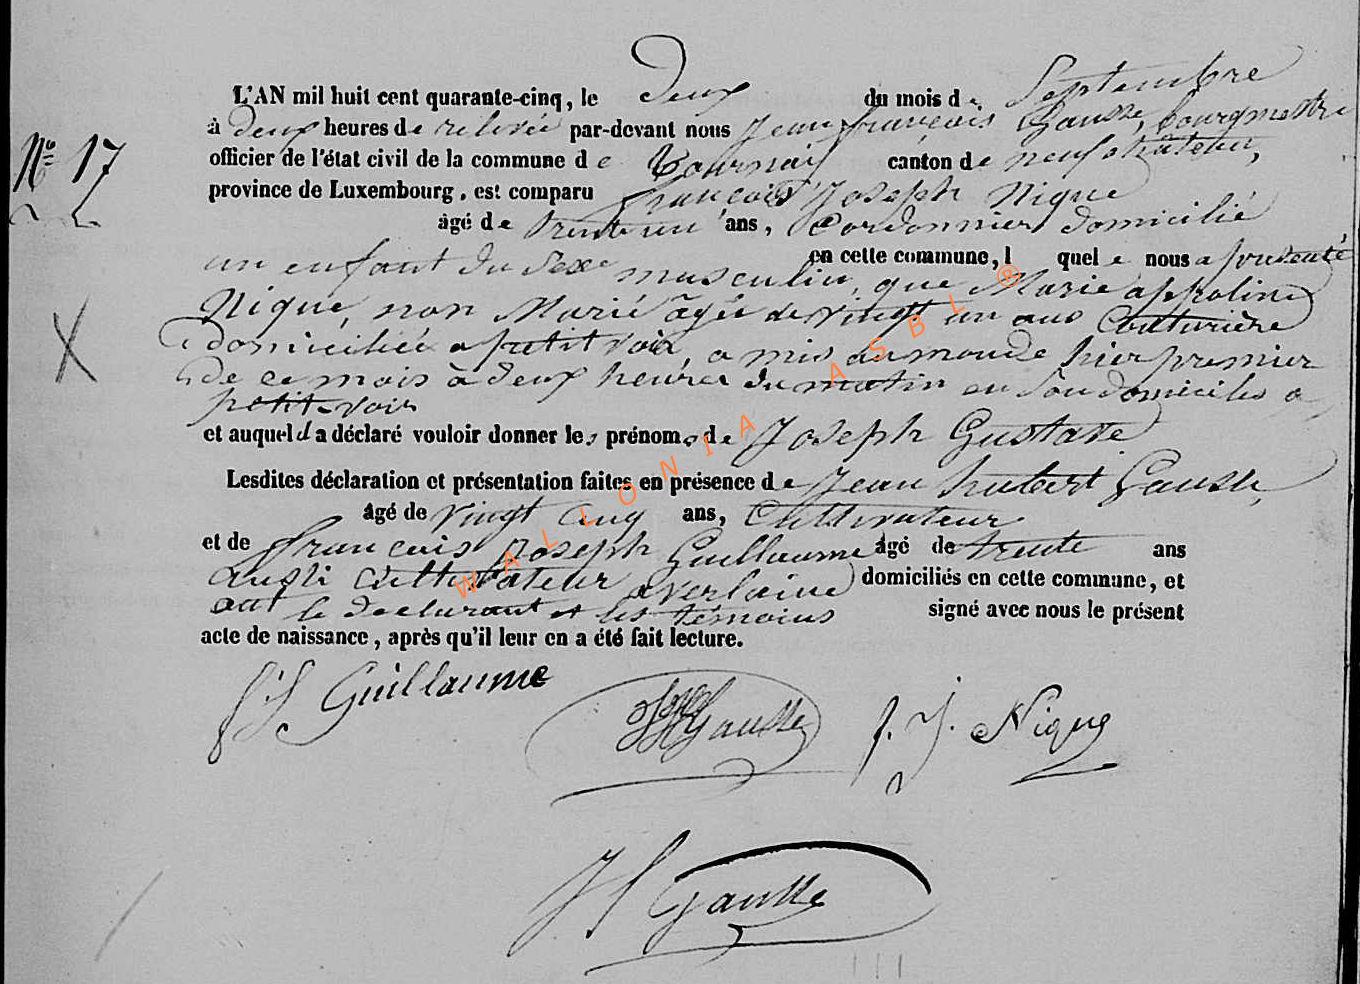 L'AN mil huit cent quarante-cinq, le deux du mois de Septembre
à deux heures de relevée par-devant nous Jean françois Gausse, bourgmestre
Nº 17
officier de l'état civil de la commune de Tournay canton de neufchâteau,
province de Luxembourg, est comparu françois Joseph Nique
âgé de trente un ans, Cordonnier domicilié
en cette commune, lequel nous a présenté
un enfant du Sexe masculin, que Marie appoline
Nique, non Marié âgée de vingt un ans Couturière
domiciliée a petitvoir, a mis au monde hier premier
de ce mois à deux heures du matin en Son domicile a
petit-voir
et auquel il a déclaré vouloir donner les prénoms de Joseph Gustave
Lesdites déclaration et présentation faites en présence de Jean hubert Gausse,
âgé de vingt cinq ans, Cultivateur
et de françois Joseph Guillaume âgé de trente ans
aussi cultivateur a verlaine domiciliés en cette commune, et
ont le declarant et les témoins signé avec nous le présent
acte de naissance, après qu'il leur en a été fait lecture.
fJ Guillaume
JHGausse
f. J. Nique
Jf Gausse
WALLONIA ASBL ®